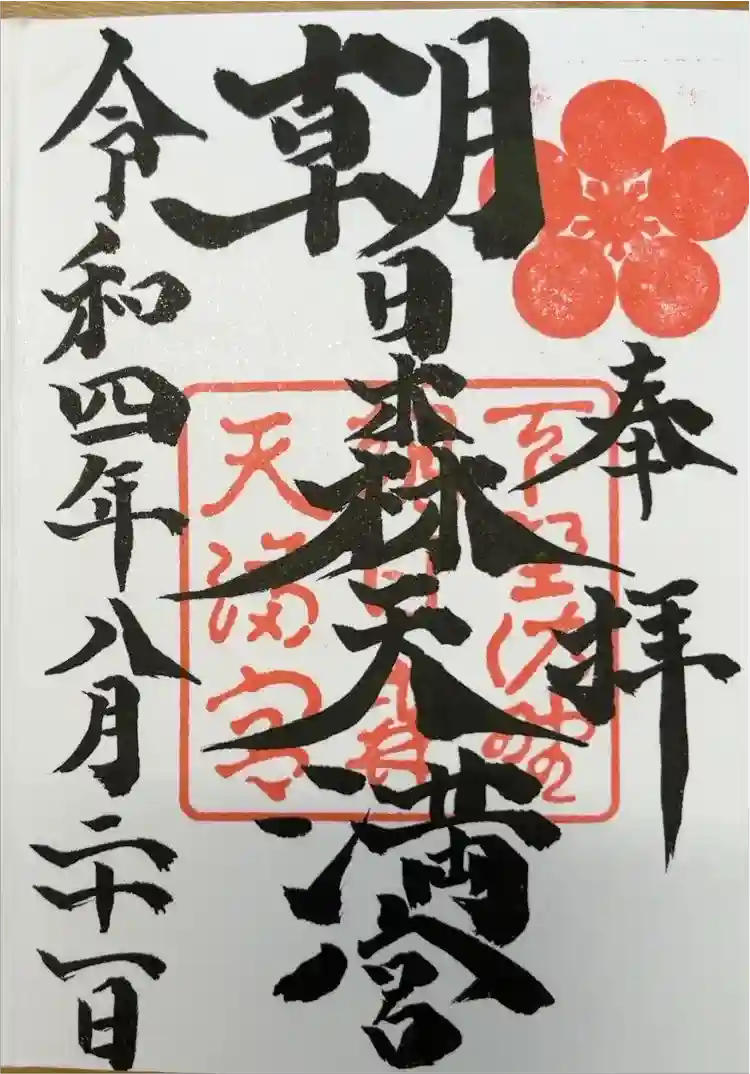 奉拝
朝日森天満宮
令和四年八月二十一日
朝日森
天満宮